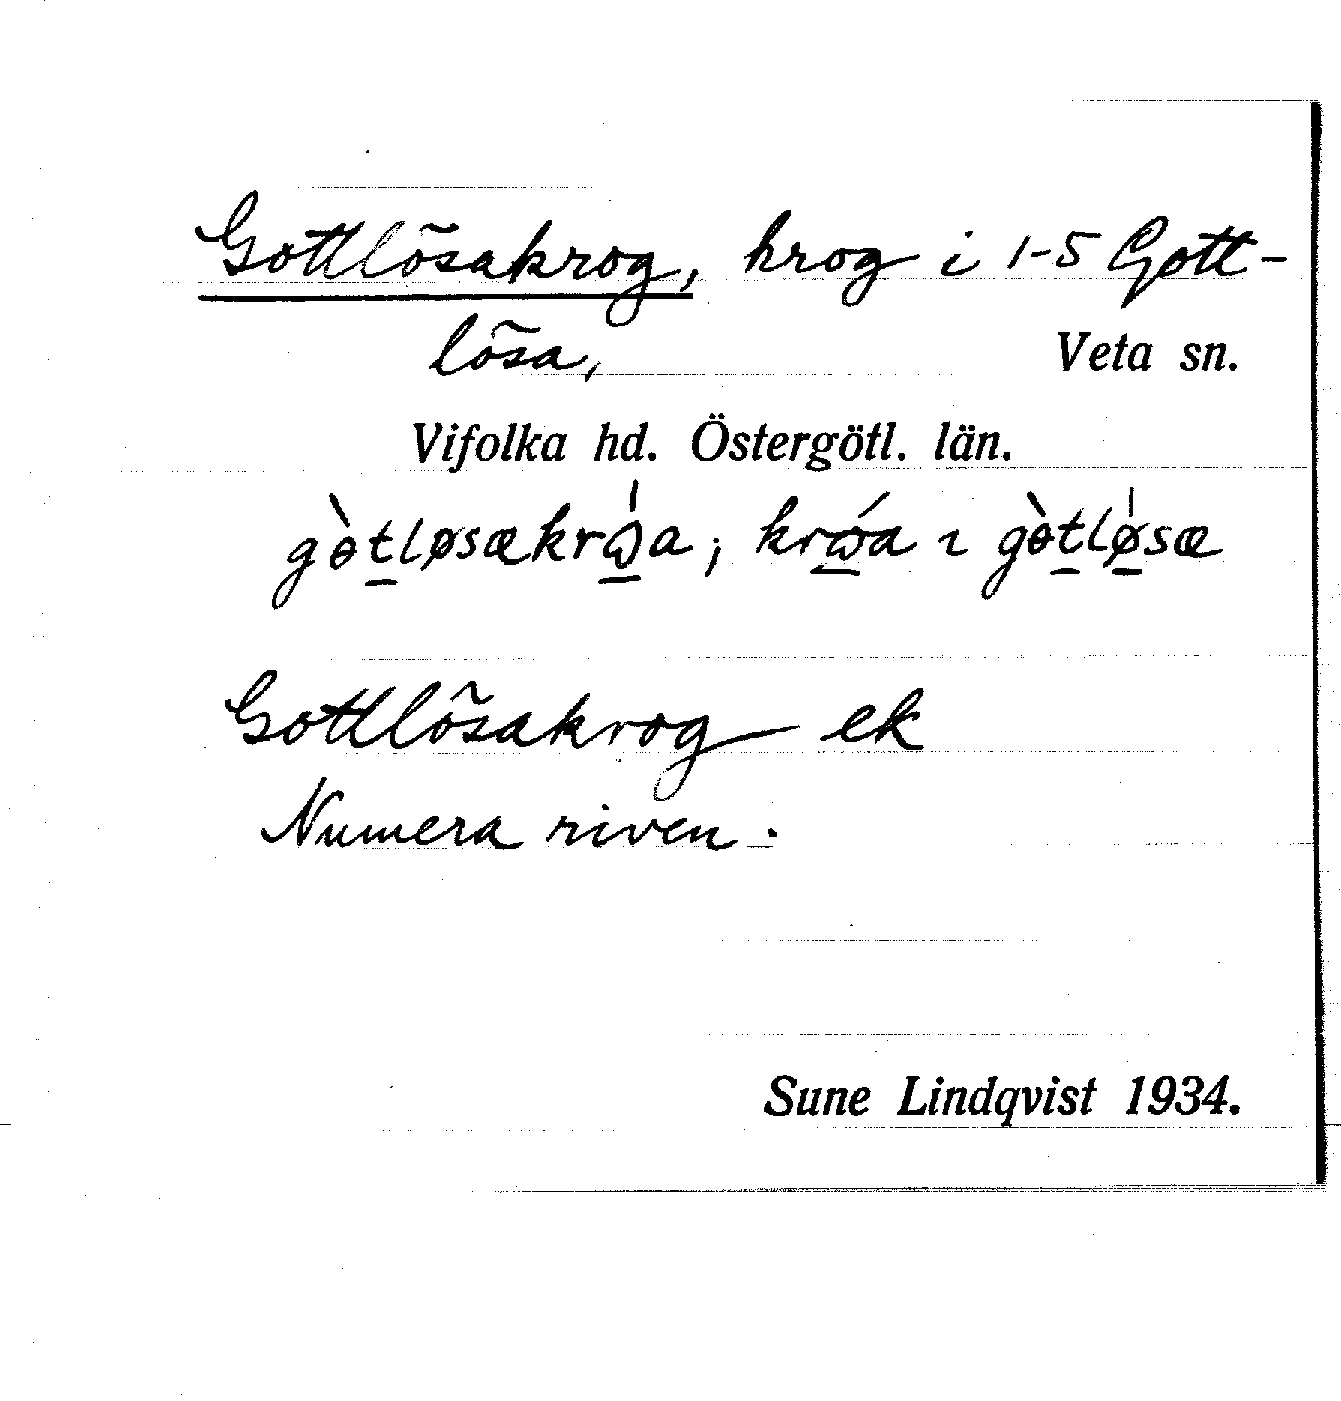 Gottlösakrog, krog i 1-5 Gott-
lösa, Veta sn.
Vifolka hd. Östergötl. län.
gɵ̀t̲løsækrɷ̲́a, krɷ̲́a ɩ gɵ̀t̲lǿ̲sæ
Gottlösakrog ek
Numera riven.
Sune Lindqvist 1934.